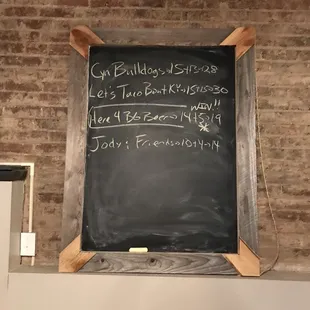 Cyn Bulldogs 15+13=28
Let's Taco Bout K 15+15=30
WIN!!
Here 4 BG Beer 14+5=19
Jody's Friends 10+4=14